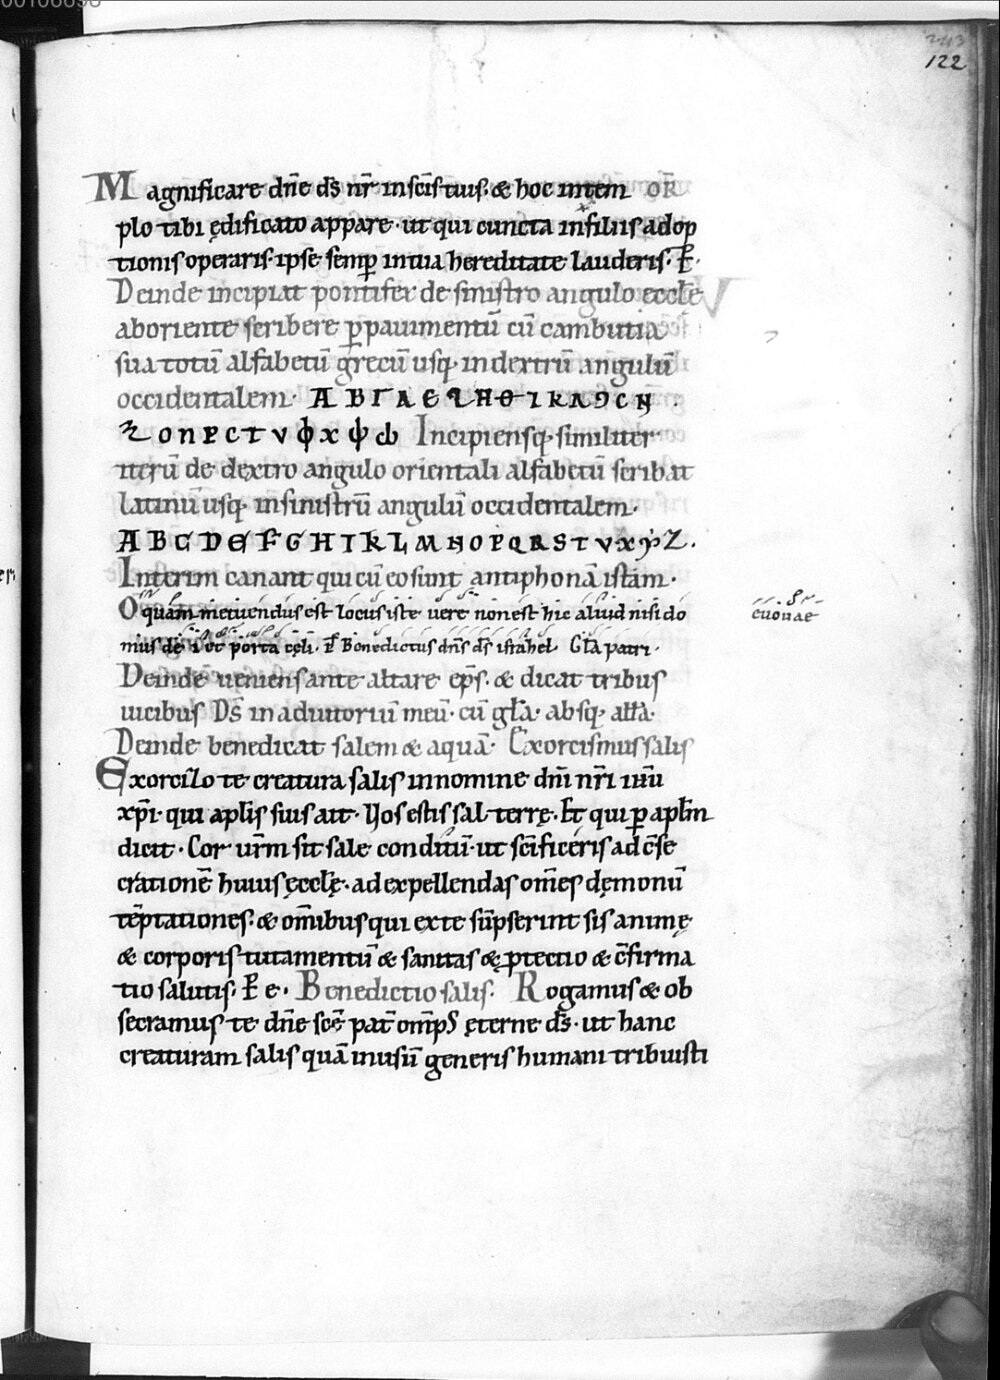 00106698
243
122
Magnificare dn̄e ds̄ nr̄ insc̄is tuis· & hoc intem OR̄
plo tibi ędificato appare· ut qui cuncta infiliis adop
tionis operaris· ipse semp̱ intua hereditate lauderis· P̱·
Deinde incipiat pontifex de sinistro angulo eccl̄e
aboriente scribere p̱pauimentū cū cambutta
sua totū alfabetū grecū usq· indextrū angulū
occidentalem·
Incipiensq· similiter
iterū de dextro angulo orientali alfabetū scribat
latinū usq· insinistrū angulū occidentalem·
A B C D E F G H I K L M N O P Q R S T V X Y Z.
Interim canant qui cū eo sunt antiphonā istam·
O quam metuendus est locus iste uere non est hic aliud nisi do
euouae
mus dei & porta cęli· P̱ Benedictus dn̄s ds̄ israhel Gl̄a patri·
Deinde ueniens ante altare ep̄s· & dicat tribus
uicibus Ds̄ in adiutoriū meū· cū gl̄a· absq· all̄a·
Deinde benedicat salem & aquā· Exorcismus salis
Exorcizo te creatura salis innomine dn̄i nr̄i ihū
xp̄i· qui apl̄is suis ait· Vos estis sal terrę· Et qui p̱ apl̄m
dicit· Cor ur̄m sit sale conditū· ut sc̄ificeris ad c̄se
crationē huius ęccl̄ę· ad expellendas om̄es dęmonū
tēptationes· & om̄ibus qui ex te sūpserint sis animę
& corporis tutamentū & sanitas & ptectio & c̄firma
tio salutis· P̱ e· Benedictio salis· Rogamus & ob
secramus te dn̄e sc̄e pat̄ om̄ps ęterne ds̄· ut hanc
creaturam salis quā inusū generis humani tribuisti